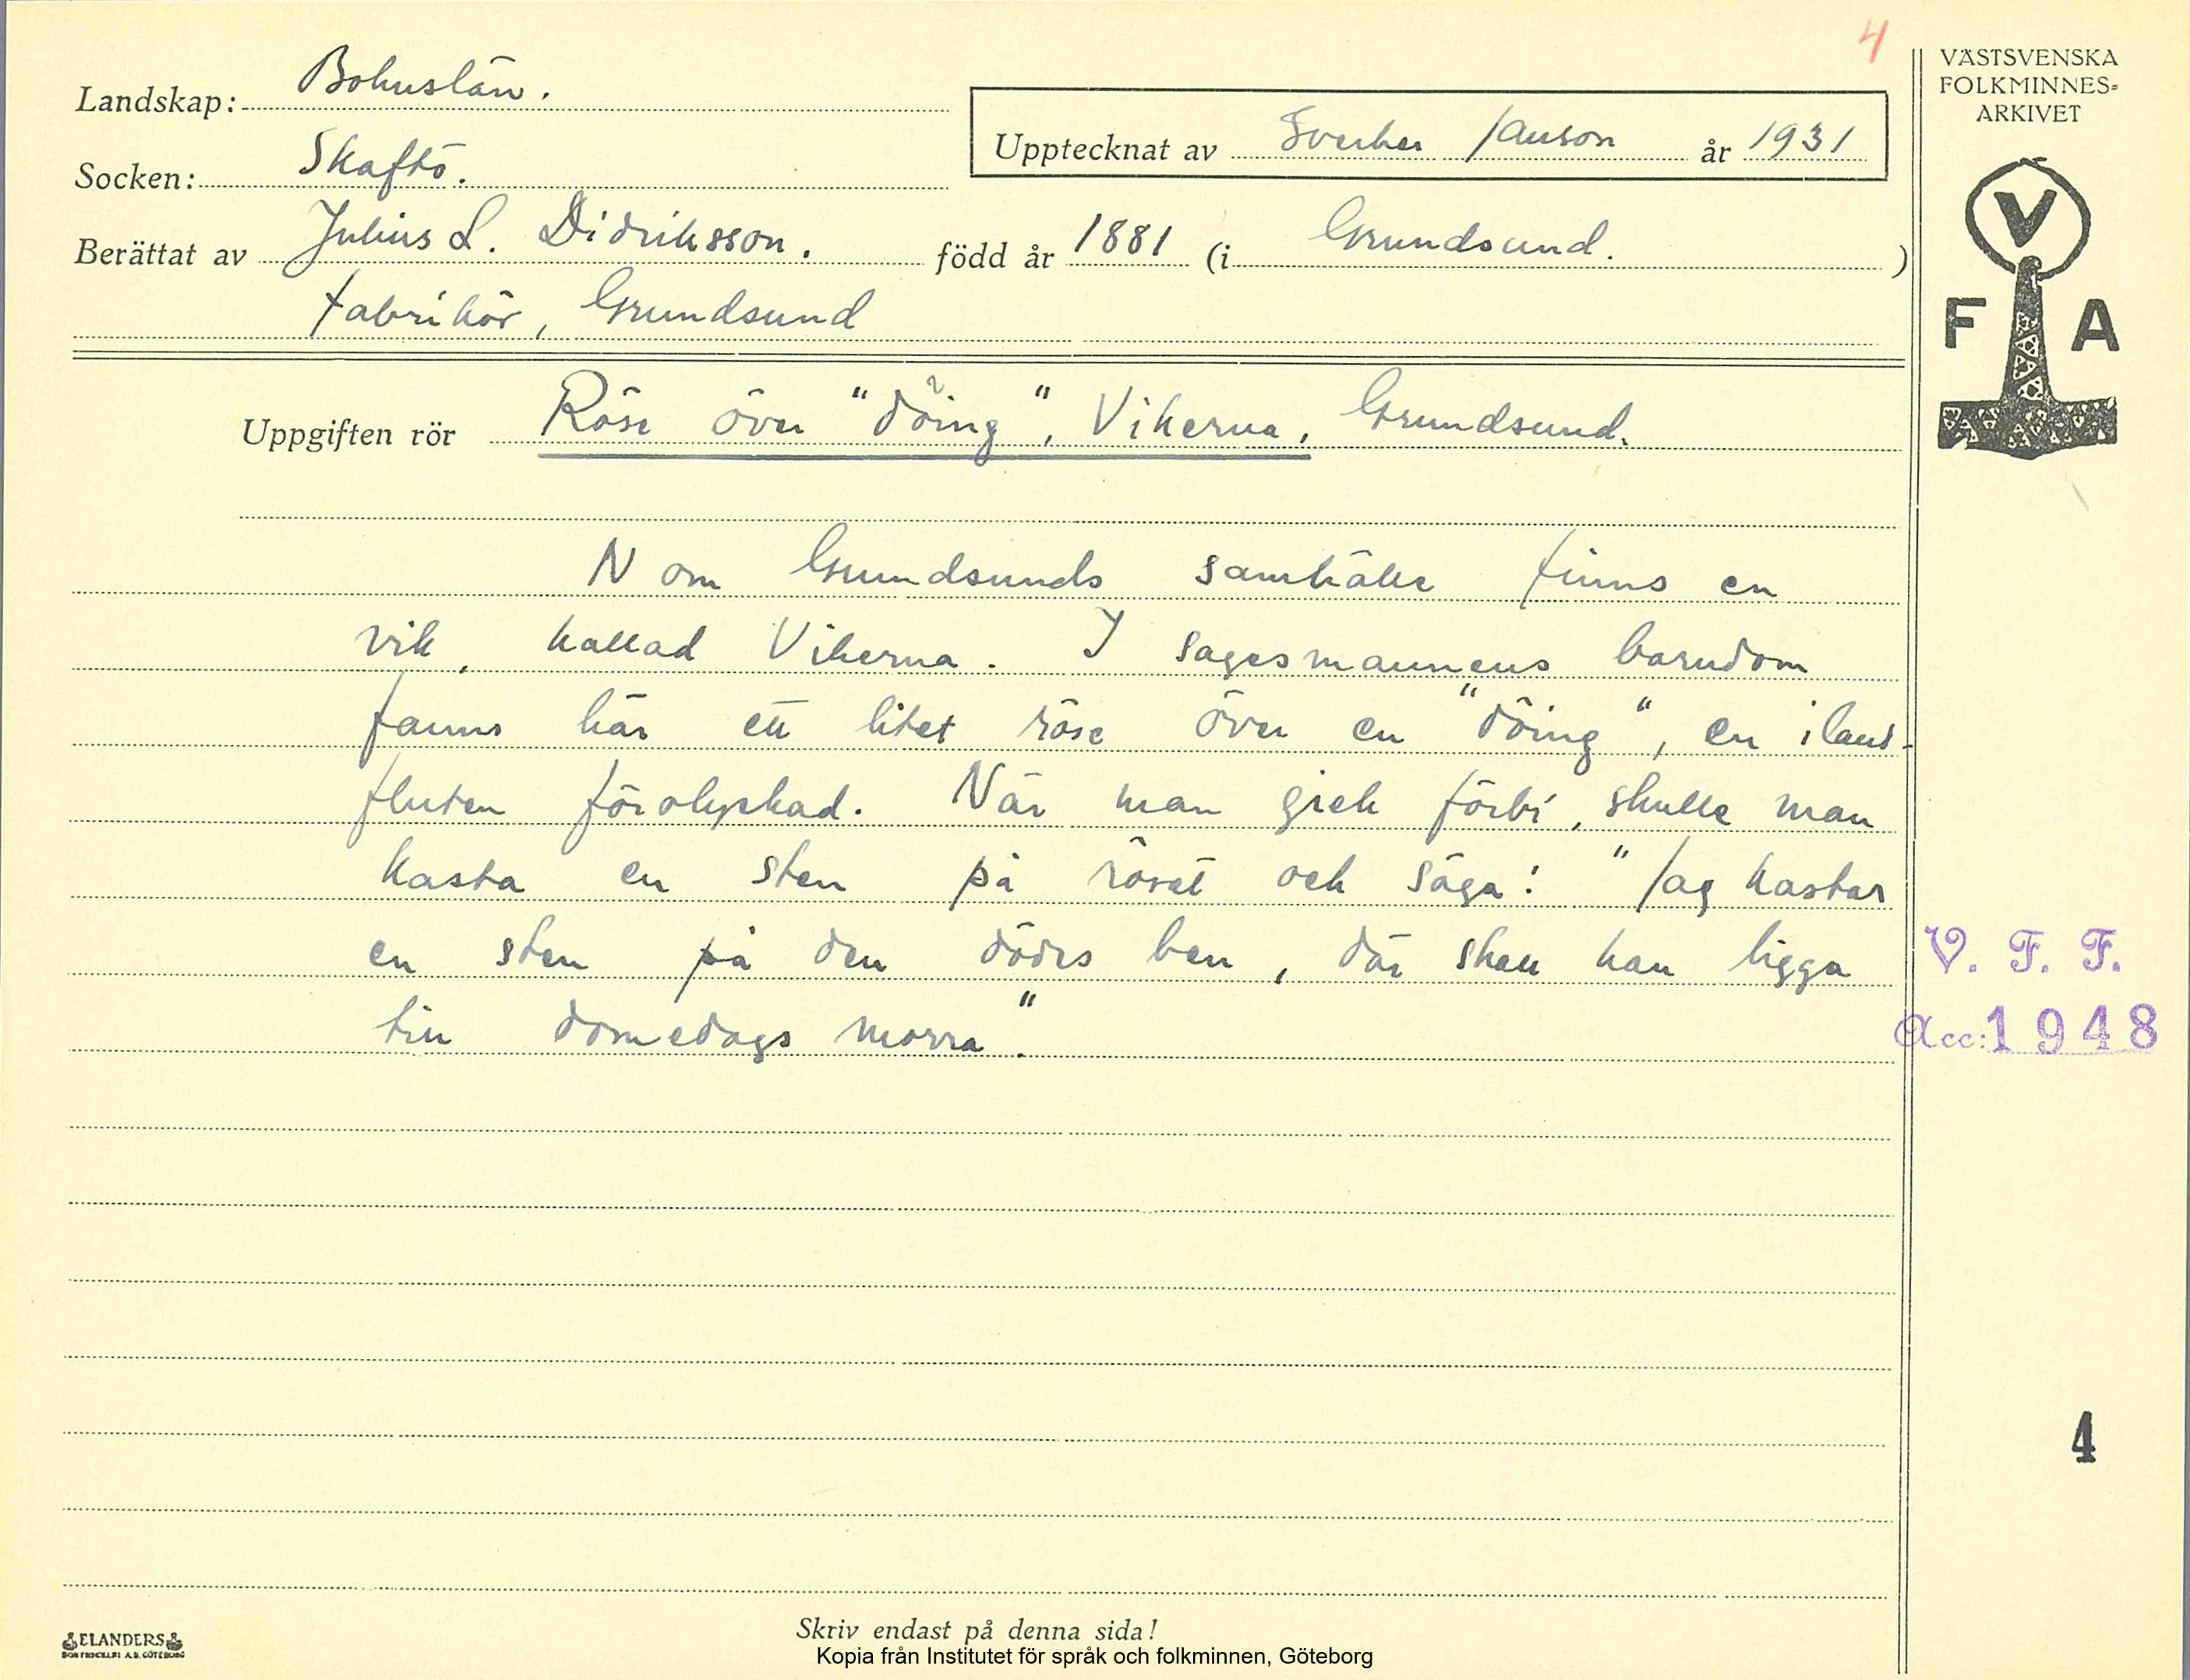 4
VÄSTSVENSKA
FOLKMINNES=
ARKIVET
Landskap: Bohuslän.
Upptecknat av Sverker Janson år 1931
Socken: Skaftö.
Berättat av Julius L. Didriksson. född år 1881 (i Grundsund. )
fabrikör, Grundsund
V
F A
Uppgiften rör Röse över "döing", Vikerna, Grundsund.
N om Grundsunds samhälle finns en
vik, kallad Vikerna. I sagesmannens barndom
fanns här ett litet röse över en "döing", en iland-
fluten förolyckad. När man gick förbi, skulle man
kasta en sten på röset och säga: "Jag kastar
en sten på den dödes ben, där skall han ligga
till domedags morra".
V. F. F.
Acc: 1948
4
Skriv endast på denna sida!
ELANDERS
Kopia från Institutet för språk och folkminnen, Göteborg